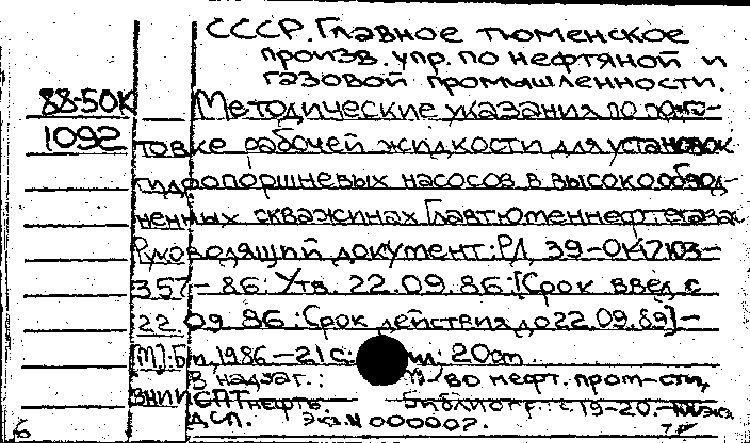 СССР. Главное тюменское
произв. упр. по нефтяной и
газовой промышленности.
88-50К Методические указания по подго-
1092 товке рабочей жидкости для установок
гидропоршневых насосов в высокообвод-
ненных скважинах Главтюменнефтегаза:
Руководящий документ: РД 39-0147103-
357-86: Утв. 22.09.86: [Срок введ. с
22.09.86: Срок действия до 22.09.89] -
[М]: Б.и., 1986. - 21 с. ил; 20 см.
В надзаг.: М-во нефт. пром-сти,
ВНИИСПТнефть. Библиогр.: с. 19-20.
ДСП. Экз. N 000007.